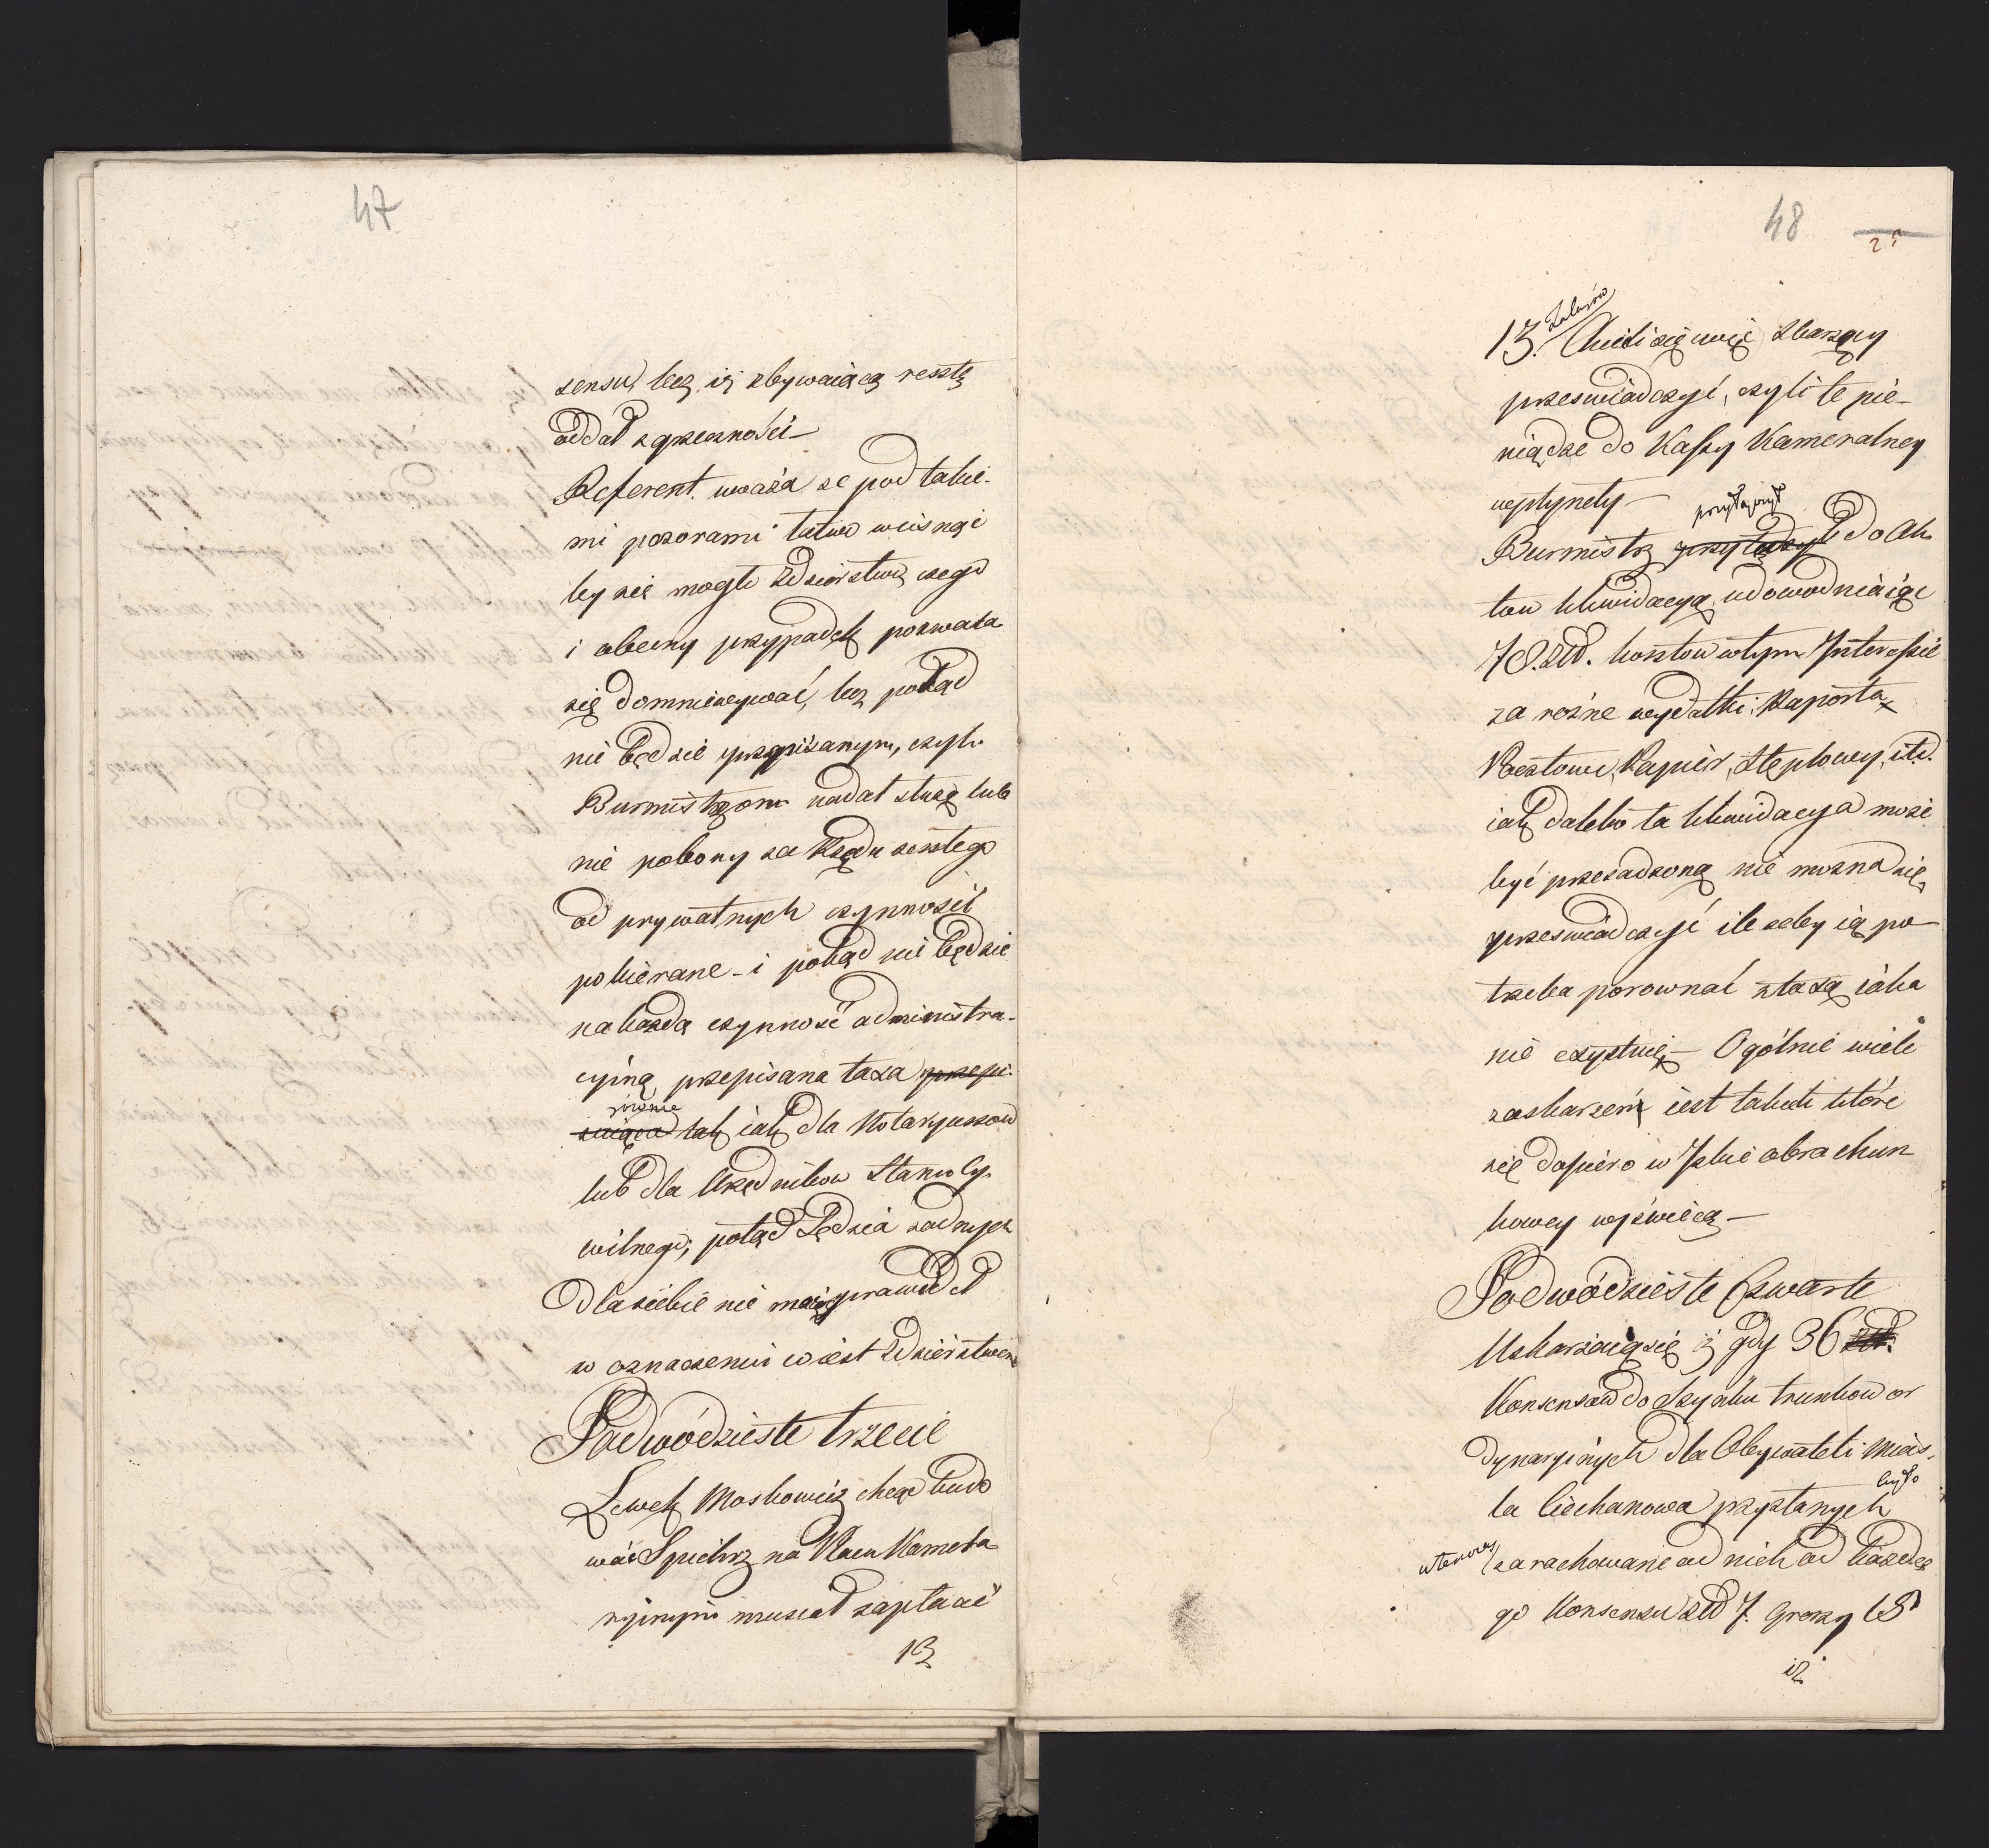 47
sensu, lecz iż zbywaiącą resztę
oddał z grzeczności –
Referent uważa że pod takie-
mi pozorami łatwo wcisnąć
by się mogło zdzierstwo, czego
i obecny przypadek pozwala
się domniemywać, lecz pokąd
nie będzie przepisanym, czyli
Burmistrzom nadal służą lub
nie pobory za Rządu zeszłego
od prywatnych czynności
pobierane – i pokąd nie będzie
na każdą czynność administra-
cyiną przepisana taxa przepi-
równie
tak iak dla Notaryuszow
lub dla Urzędnikow Stanu Cy-
wilnego; potąd Sędzia żadnych
dla siebie nie ma prawideł
w oznaczeniu co iest zdzierstwem
Po dwódzieste trzecie
Lewek Moskowicz chcąc budo
wać Spichrz na Placu Kamera
ryinym musiał zapłacić
13
48
25
Talarów
13. Chcieli się więc skarżący
przeświadczyć, czyli te pie-
niądze do Kassy Kameralney
wpłynęły –
przyłączył
Burmistrz przyłączył do Ak-
tow likwidacyą udowodniaiąc
78. Złł. kosztow w tym Interessie
za rożne wydatki: Raporta
Pocztowe, Papier, Stęplowy, itd.
iak daleko ta likwidacya może
być przesadzoną nie można się
przeświadczyć ile żeby ią po-
trzeba porownać z taxą iaka
nie exystuie – Ogólnie wiele
zaskarżeń iest takich które
się dopiero w Izbie obrachun
kowey wyświecą –
Po dwódzieste Czwarte
Uskarżaią się iż gdy 36 złł.
Konsensow do Szynku trunkow or
dynaryinych dla Obywateli Mias-
było
ta Ciechanowa przysłanych
wtenczas zarachowano od nich od każde
go Konsensu Złł 7. groszy 15
iż